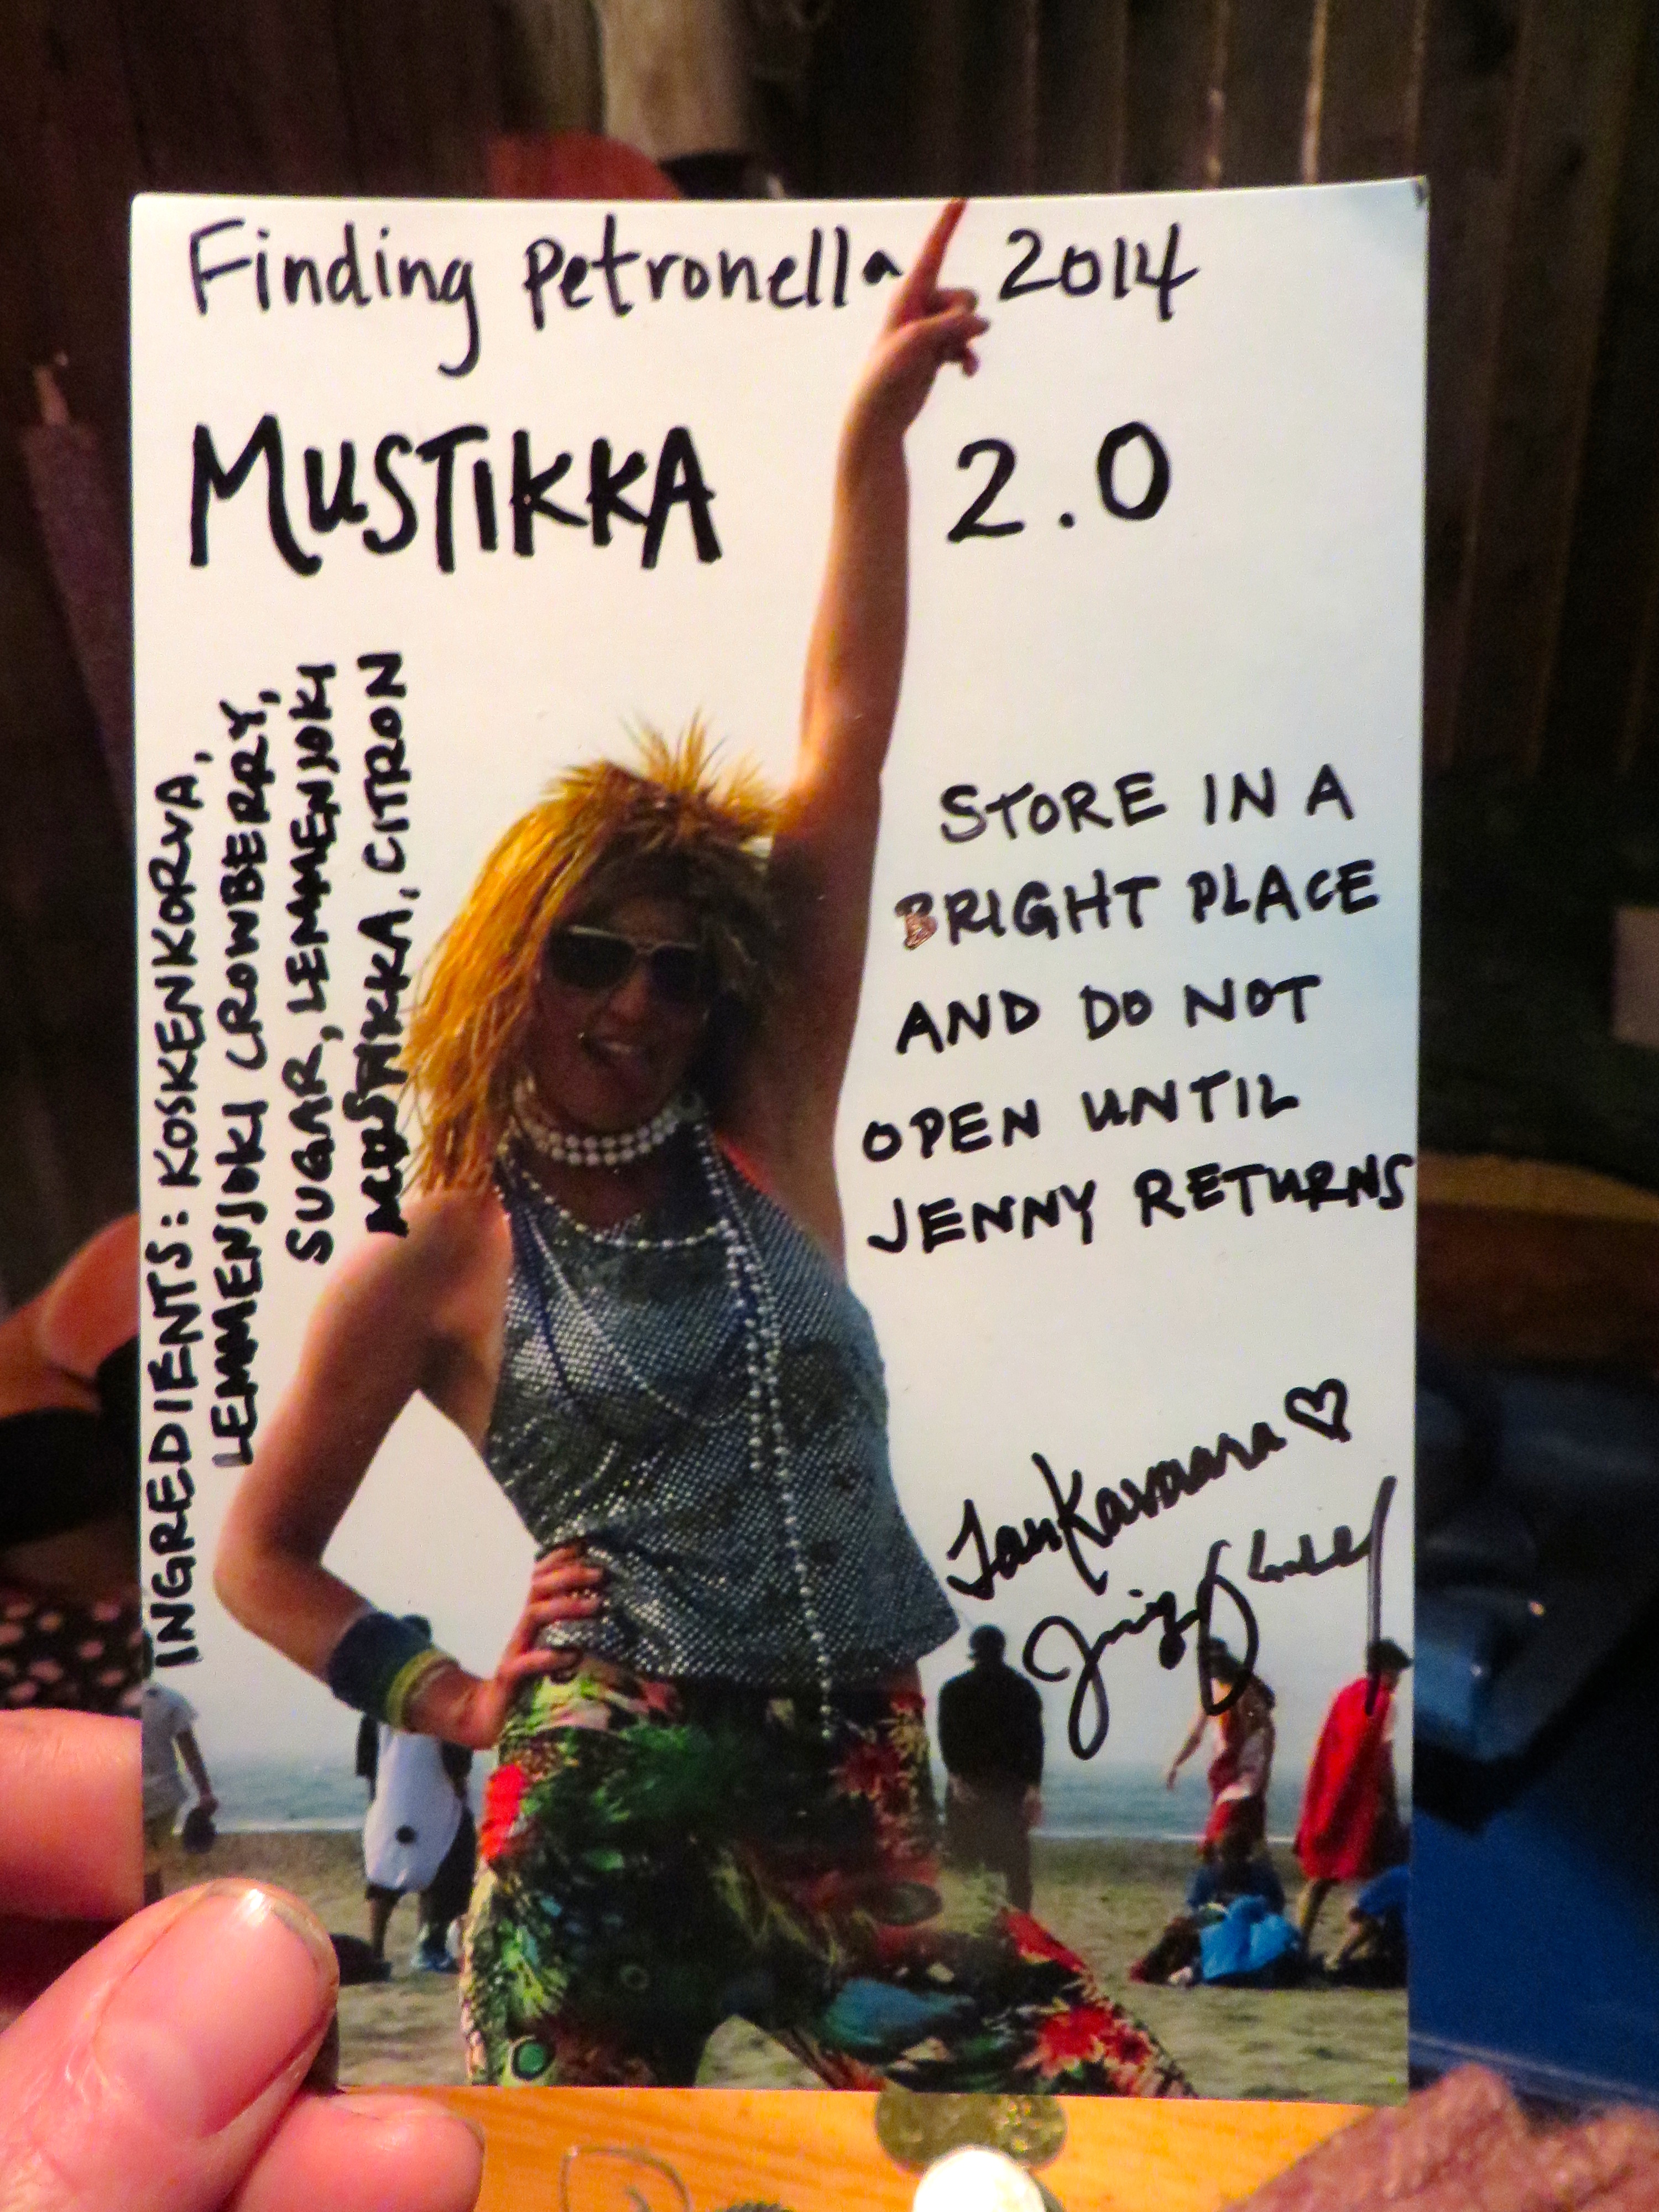 Finding Petronella 2014
MUSTIKKA 2.0
INGREDIENTS: KOSKENKORVA,
LEMMENJOKI CROWBERRY,
SUGAR, LEMMENJOKI
MUSTIKKA, CITRON
STORE IN A
BRIGHT PLACE
AND DO NOT
OPEN UNTIL
JENNY RETURNS